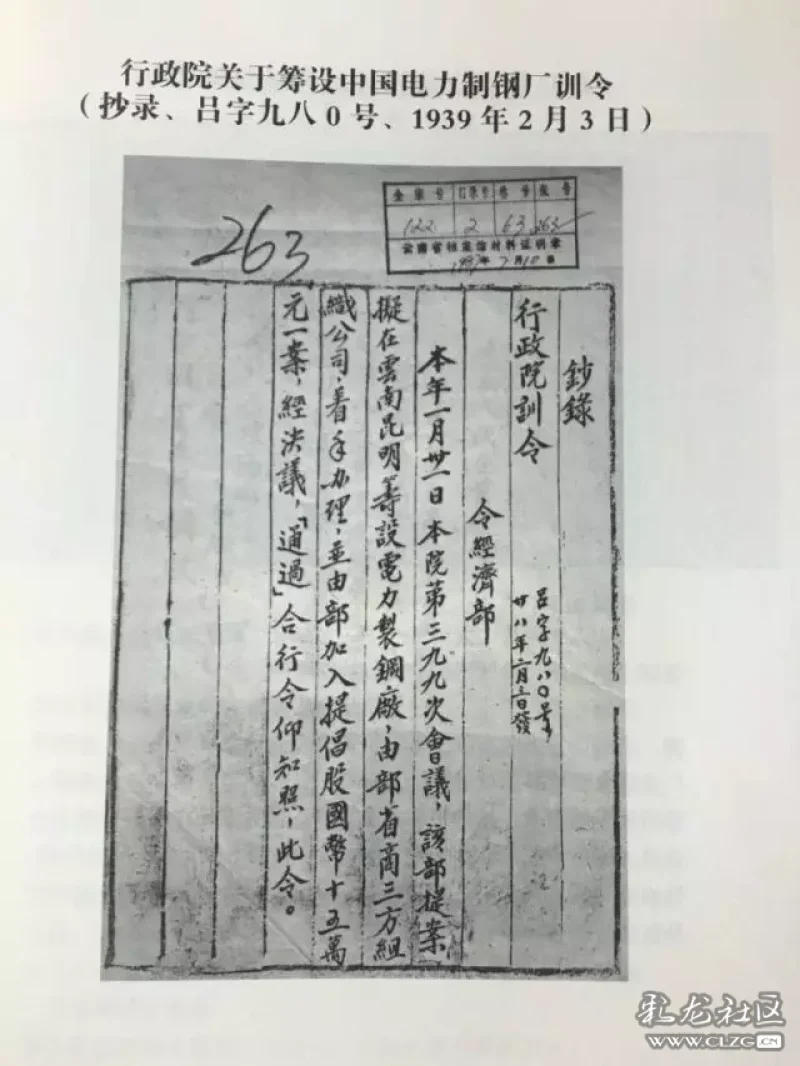 行政院关于筹设中国电力制钢厂训令
（抄录、吕字九八0号、1939年2月3日）
263
全宗号 目录号 卷号 张号
122 2 63 263
云南省档案馆材料证明章
鈔錄
行政院訓令
吕字九八〇号
廿八年二月三日發
令經濟部
本年一月卅一日本院第三九九次會議，該部提案
擬在雲南昆明籌設電力製鋼廠，由部省商三方組
織公司，着手办理，並由部加入提倡股國幣十五萬
元一案，經決議，「通過」合行令仰知照，此令。
乳龙社区
WWW.CLZG.CN